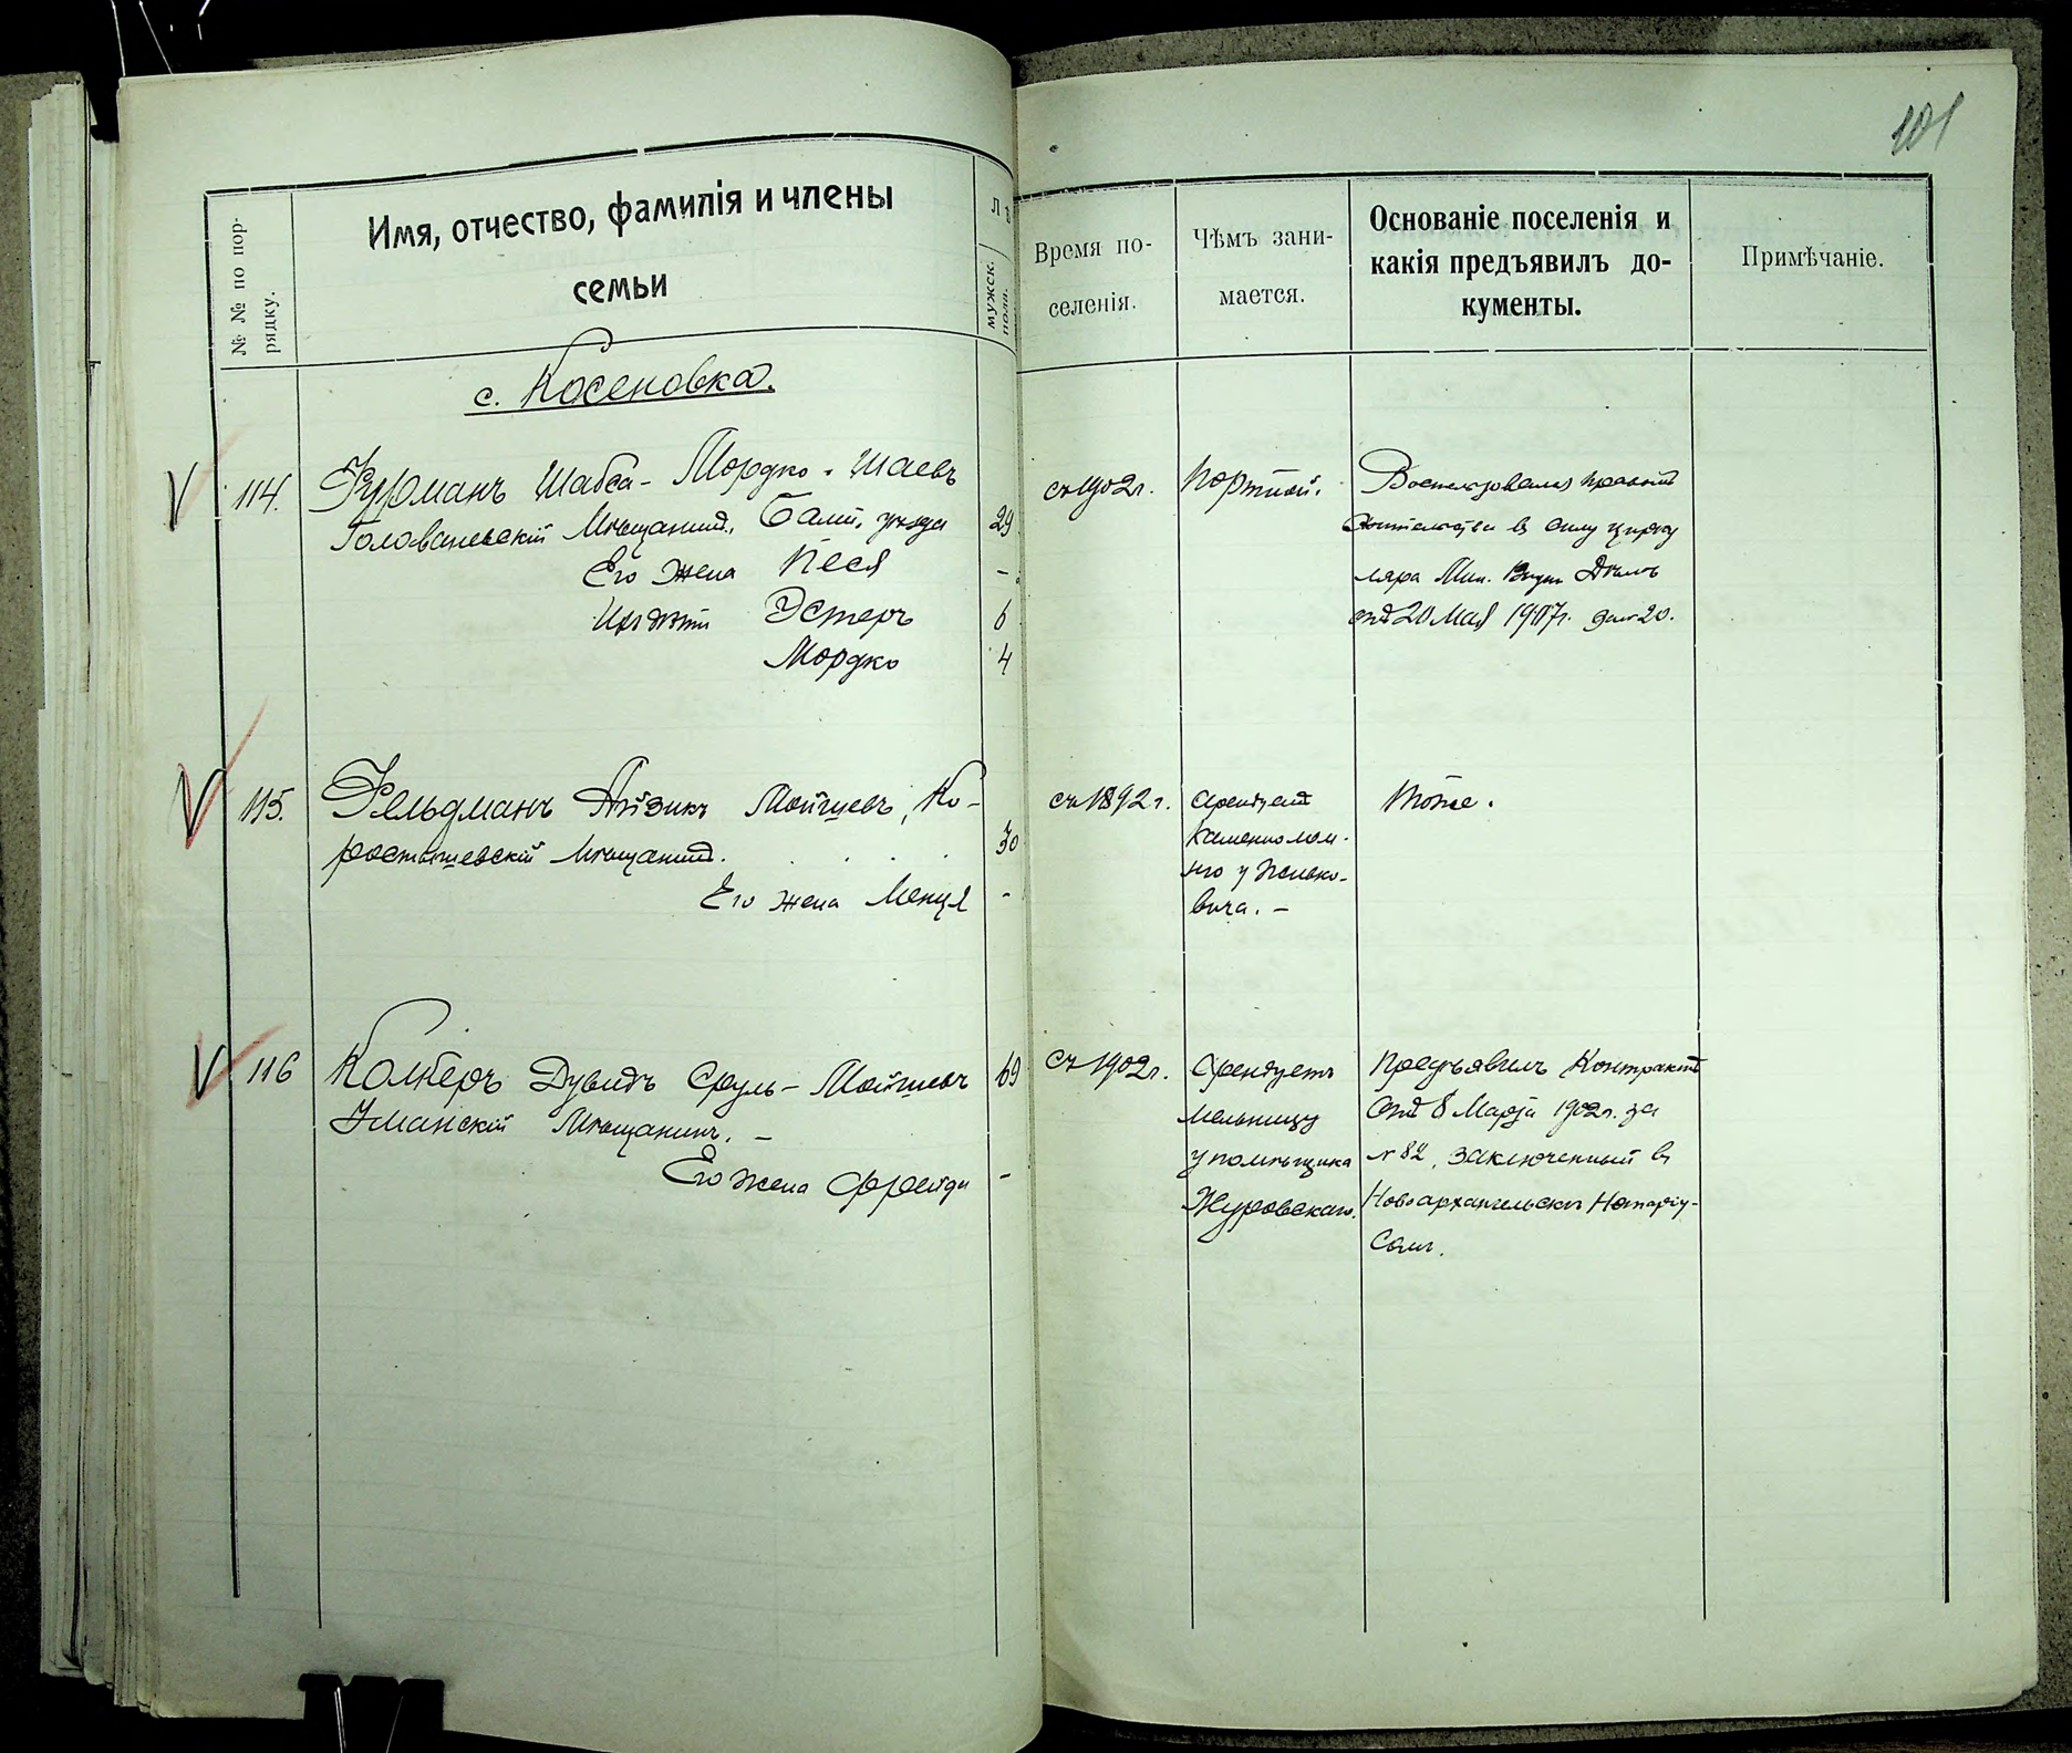 101
№ № по пор-
рядку.
Имя, отчество, фамилія и члены
семьи
Лѣ
мужск.
пола.
Время по-
селенія.
Чѣмъ зани-
мается.
Основаніе поселенія и
какія предъявилъ до-
кументы.
Примѣчаніе.
с. Косеновка.
114.
Фурманъ Шабса-Мордко-Шаевъ
Голованевскій Мѣщанинъ, Балт. уѣзда
29
Его жена Песя
-
Ихъ дѣти Эстеръ
6
Мордко
4
съ 1902 г.
Портной.
Воспользовался правомъ
жительства въ силу цирку
ляра Мин. Внутр Дѣлъ
отъ 20 Мая 1907г. за № 20.
115.
Фельдманъ Айзикъ Мойшевъ, Ко-
ростышевскій Мѣщанинъ.
30
Его жена
-
съ 1892 г.
Арендуетъ
каменолом-
ню у
вича. –
Тоже.
116
Колкеръ Дувидъ Сруль-Мойшевъ
69
Уманскій Мѣщанинъ. –
Его жена Фрейда
-
съ 1902г.
Арендуетъ
мельницу
у помѣщика
Журовскаго.
Предъявилъ Контрактъ
отъ 8 Марта 1902г. за
№ 82, заключенный въ
Новоархангельскѣ Нотаріу-
сомъ.